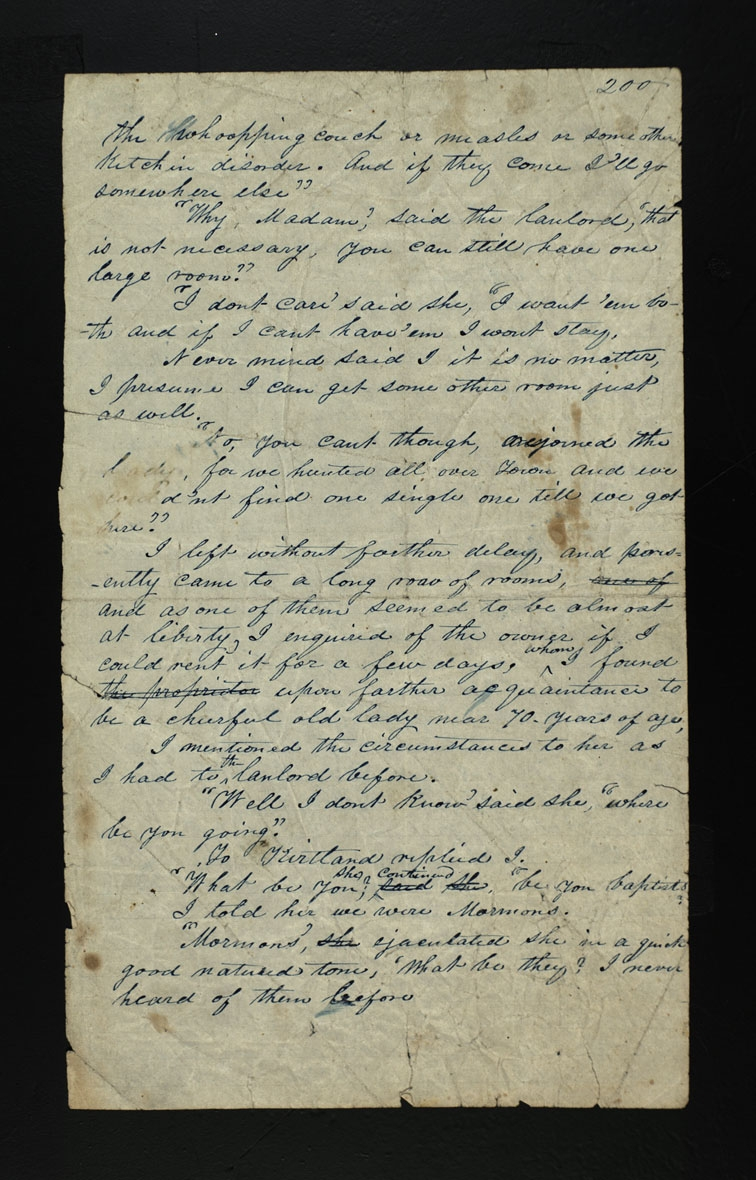 200
the whoopping couch or measles or some other
ketchin disorder. And if they come I'll go
somewhere else"
"Why, Madam", said the lanlord, "that
is not necessary, you can still have one
large room."
"I dont care" said she, "I want 'em bo-
-th and if I cant have 'em I wont stay,
Never mind said I it is no matter,
I presume I can get some other room just
as well.
"No, you cant though, rejoined the
lady, for we hunted all over Town and we
could'nt find one single one till we got
here"
I left without farther delay, and pers-
-ently came to a long row of rooms, one of
and as one of them seemed to be almost
at liberty, I enquired of the owner if I
could rent it for a few days, whom I found
the proprietor upon farther acquaintance to
be a cheerful old lady near 70 years of age,
I mentioned the circumstances to her as
I had to the lanlord before.
"Well I dont know" said she, "where
be you going."
To Kirtland replied I.
"What be you", she continued said she, "be you baptists?
I told her we were Mormons.
"Mormons", she ejaculated she in a quick
good natured tone, "What be they? I never
heard of them before